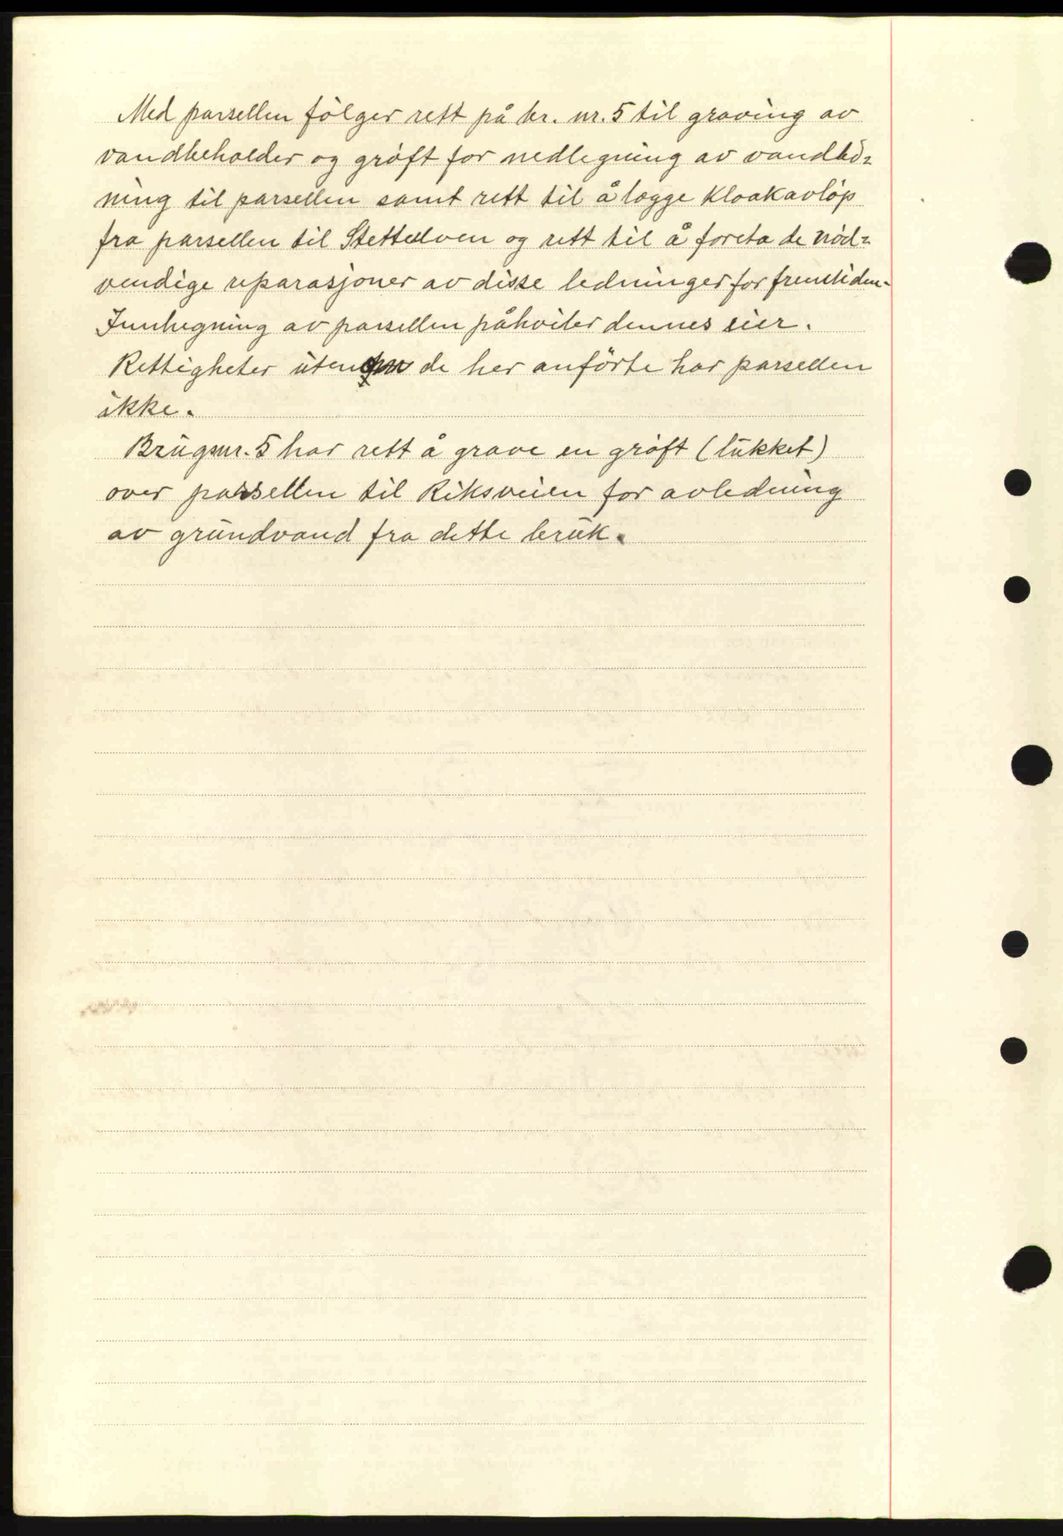 Med parsellen følger rett på br. nr. 5 til graving av
vandbeholder og grøft for nedlegning av vandled=
ning til parsellen samt rett til å lægge kloakavløp
fra parsellen til Stettelven og rett til å foreta de nød=
vendige reparasjoner av disse ledninger for fremtiden.
Innhegning av parsellen påhviler dennes eier.
Rettigheter uten de her anførte har parsellen
ikke.
Brugsnr. 5 har rett å grave en grøft (lukket)
over parsellen til Riksveien for avledning
av grundvand fra dette bruk.